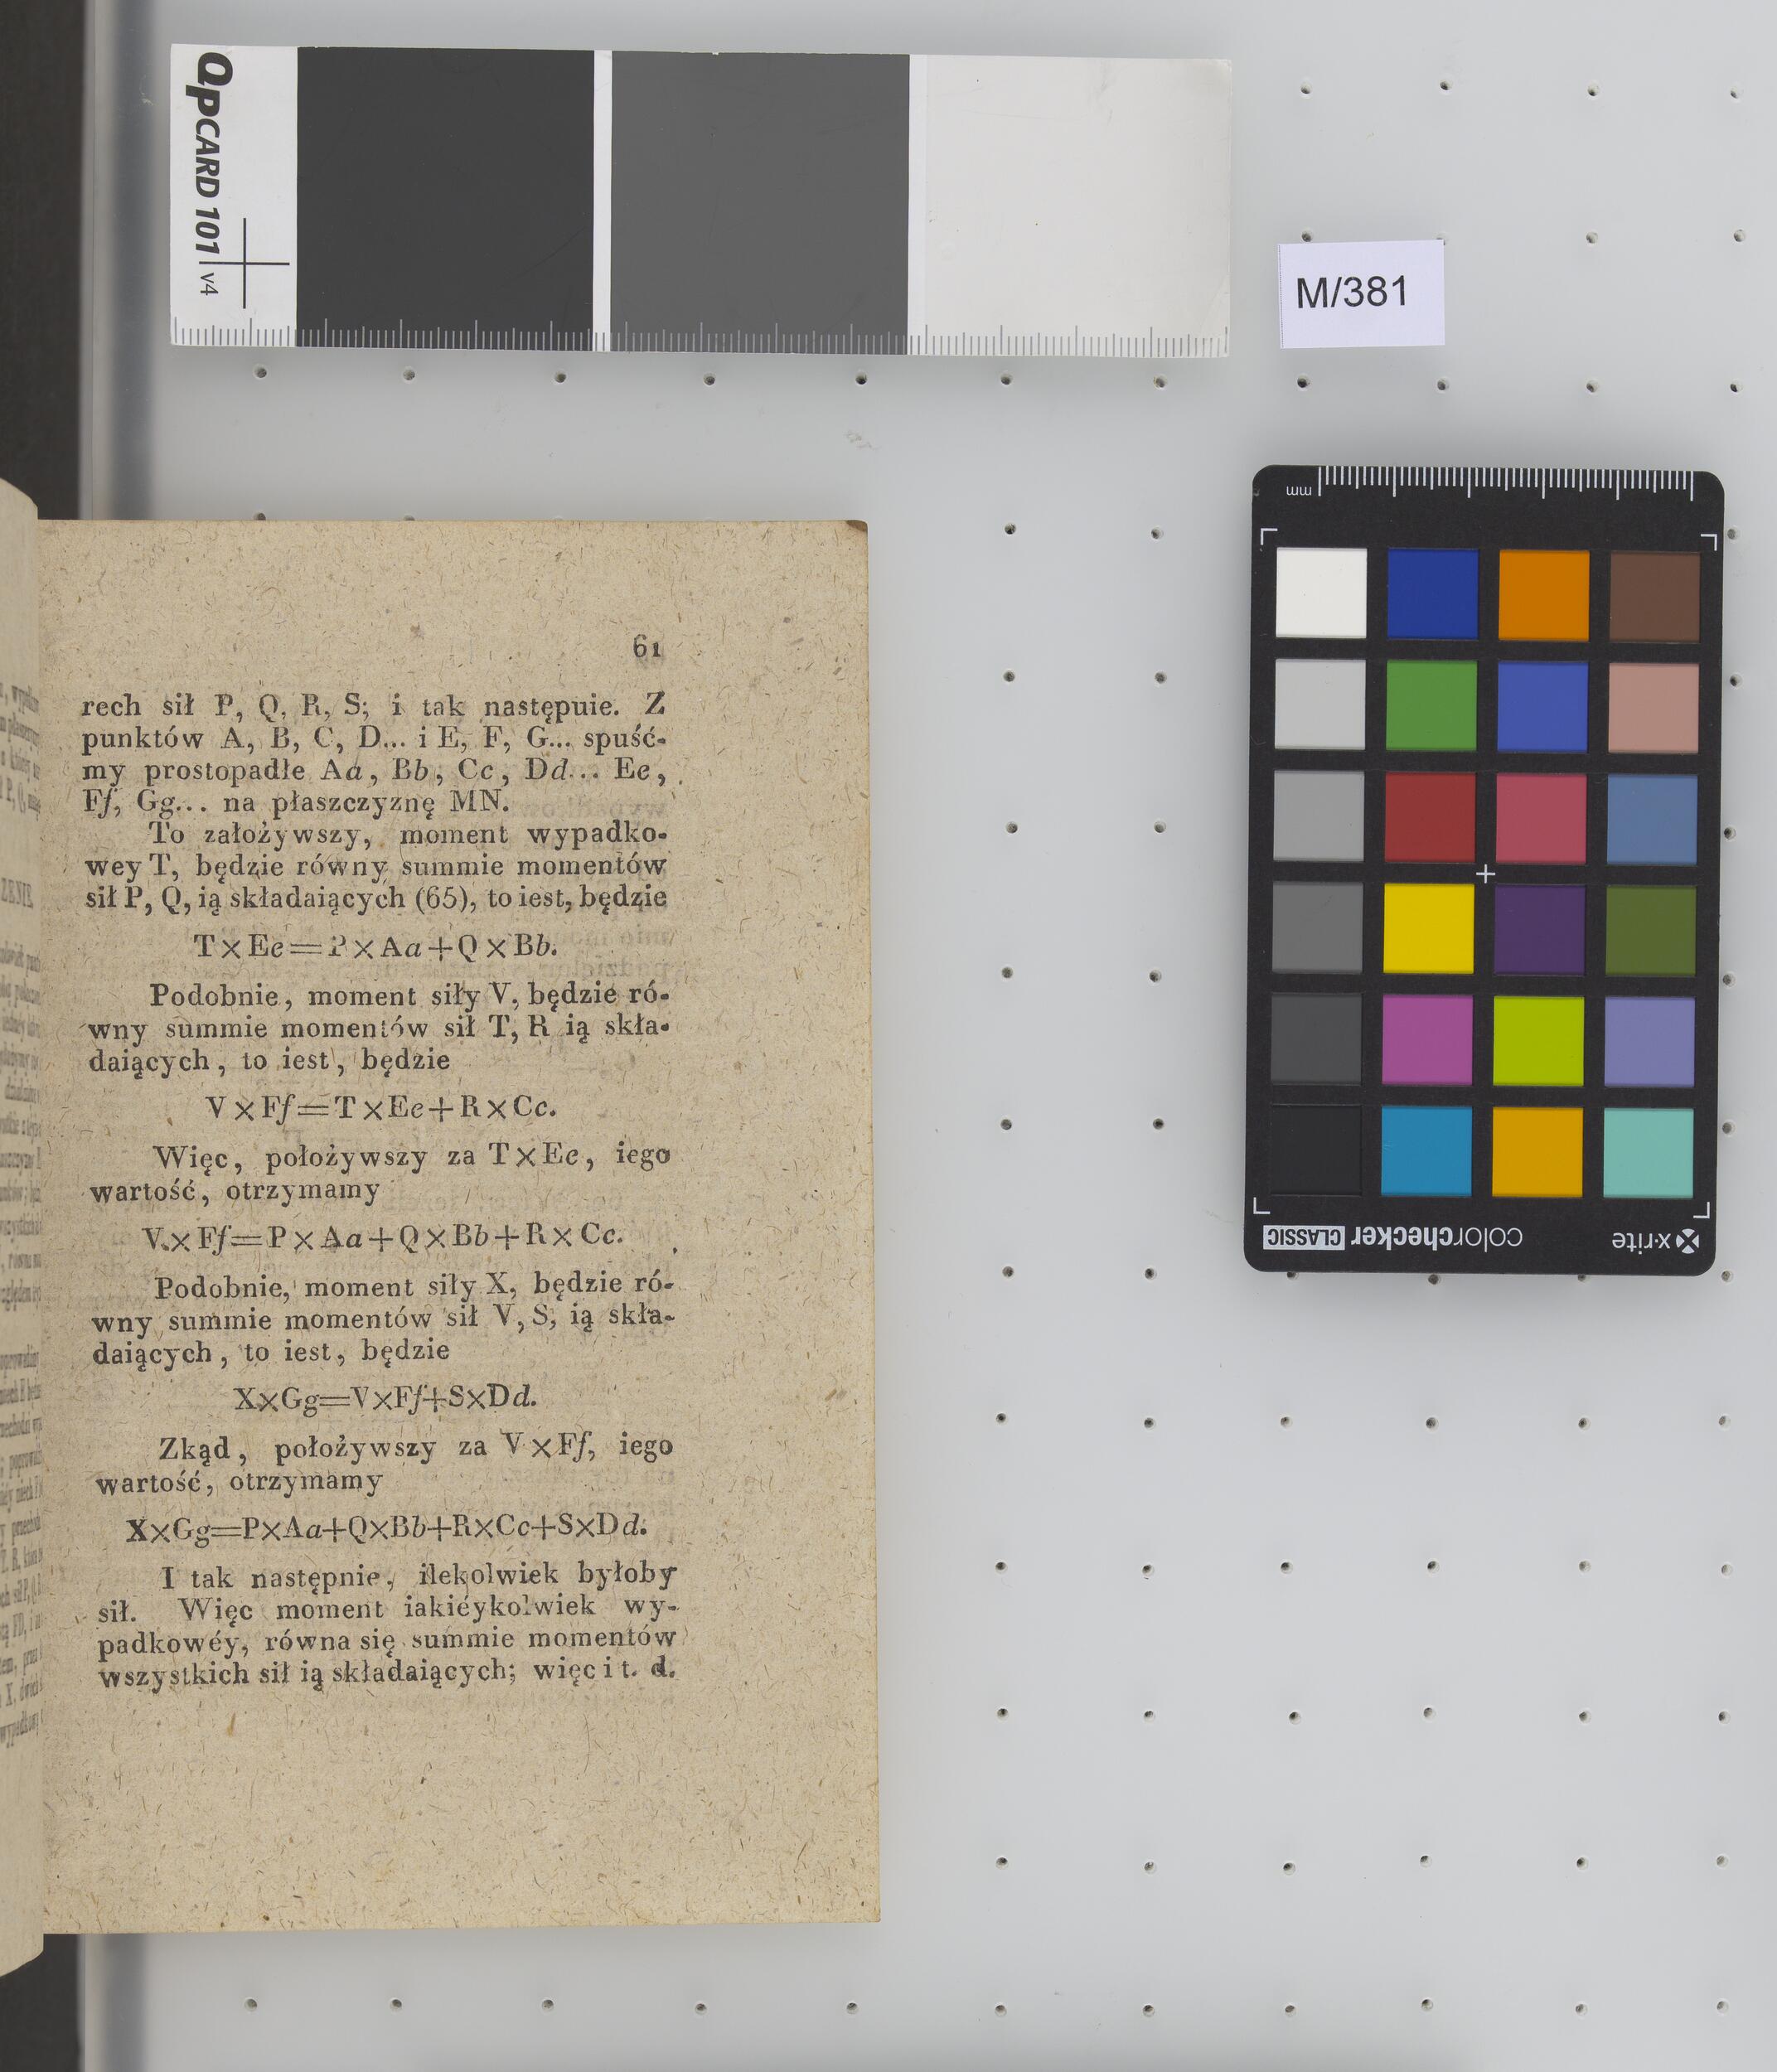 QPCARD 101 v4
M/381
mm
61
rech sił P, Q, R, S; i tak następuie. Z
punktów A, B, C, D... i E, F, G... spuść-
my prostopadłe Aa, Bb, Cc, Dd... Ee,
Ff, Gg... na płaszczyznę MN.
To założywszy, moment wypadko-
wey T, będzie równy summie momentów
sił P, Q, ią składaiących (65), to iest, będzie
T×Ee=P×Aa+Q×Bb.
Podobnie, moment siły V, będzie ró-
wny summie momentów sił T, R ią skła-
daiących, to iest, będzie
V×Ff=T×Ee+R×Cc.
Więc, położywszy za T×Ee, iego
wartość, otrzymamy
V×Ff=P×Aa+Q×Bb+R×Cc.
Podobnie, moment siły X, będzie ró-
wny summie momentów sił V, S, ią skła-
daiących, to iest, będzie
X×Gg=V×Ff+S×Dd.
Zkąd, położywszy za V×Ff, iego
wartość, otrzymamy
X×Gg=P×Aa+Q×Bb+R×Cc+S×Dd.
I tak następnie, ilekolwiek byłoby
sił. Więc moment iakiéykolwiek wy-
padkowéy, równa się summie momentów
wszystkich sił ią składaiących; więc i t. d.
x·rite colorchecker CLASSIC